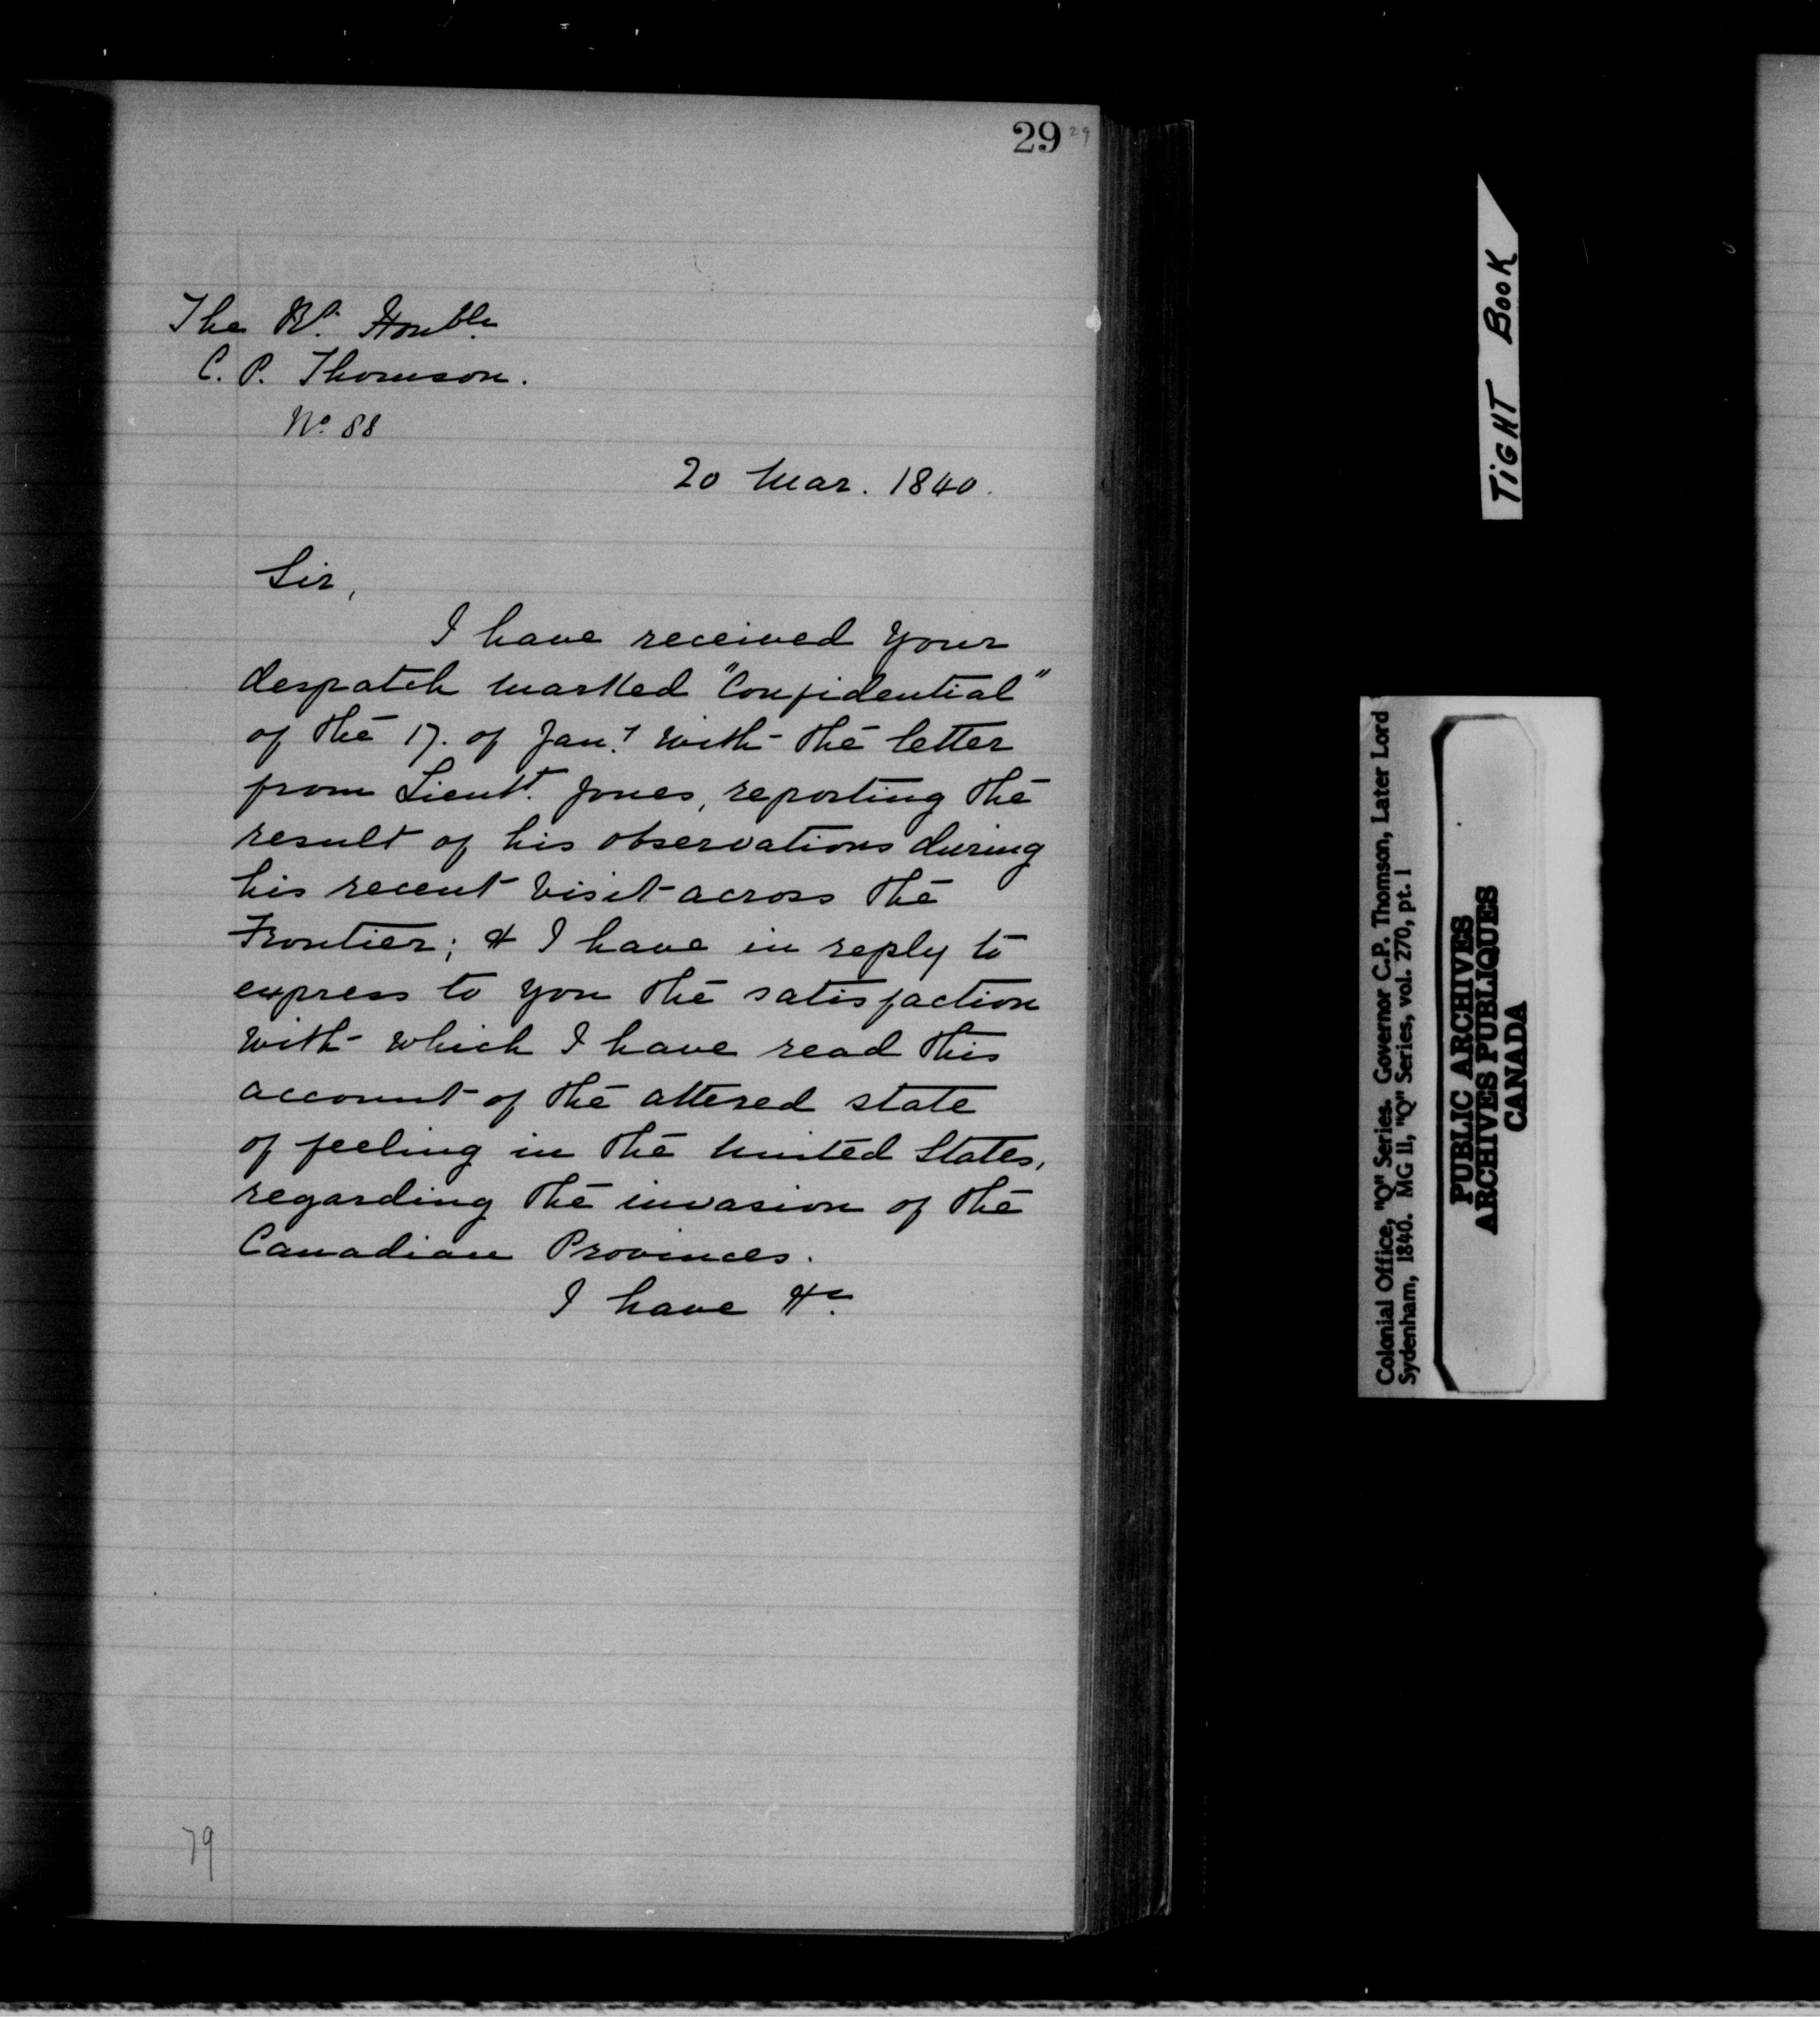 29 29
The Rt. Honble.
C. P. Thomson.
No. 88
20 Mar. 1840.
Sir,
I have received your
despatch marked "Confidential"
of the 17. of Jany. with the letter
from Lieutt. Jones, reporting the
result of his observations during
his recent visit across the
Frontier; & I have in reply to
express to you the satisfaction
with which I have read this
account of the altered state
of feeling in the United States,
regarding the invasion of the
Canadian Provinces.
I have &c.
79
TiGHT BOOK
Colonial Office, "Q" Series. Governor C.P. Thomson, Later Lord
Sydenham, 1840. MG 11, "Q" Series, vol. 270, pt. 1
PUBLIC ARCHIVES
ARCHIVES PUBLIQUES
CANADA